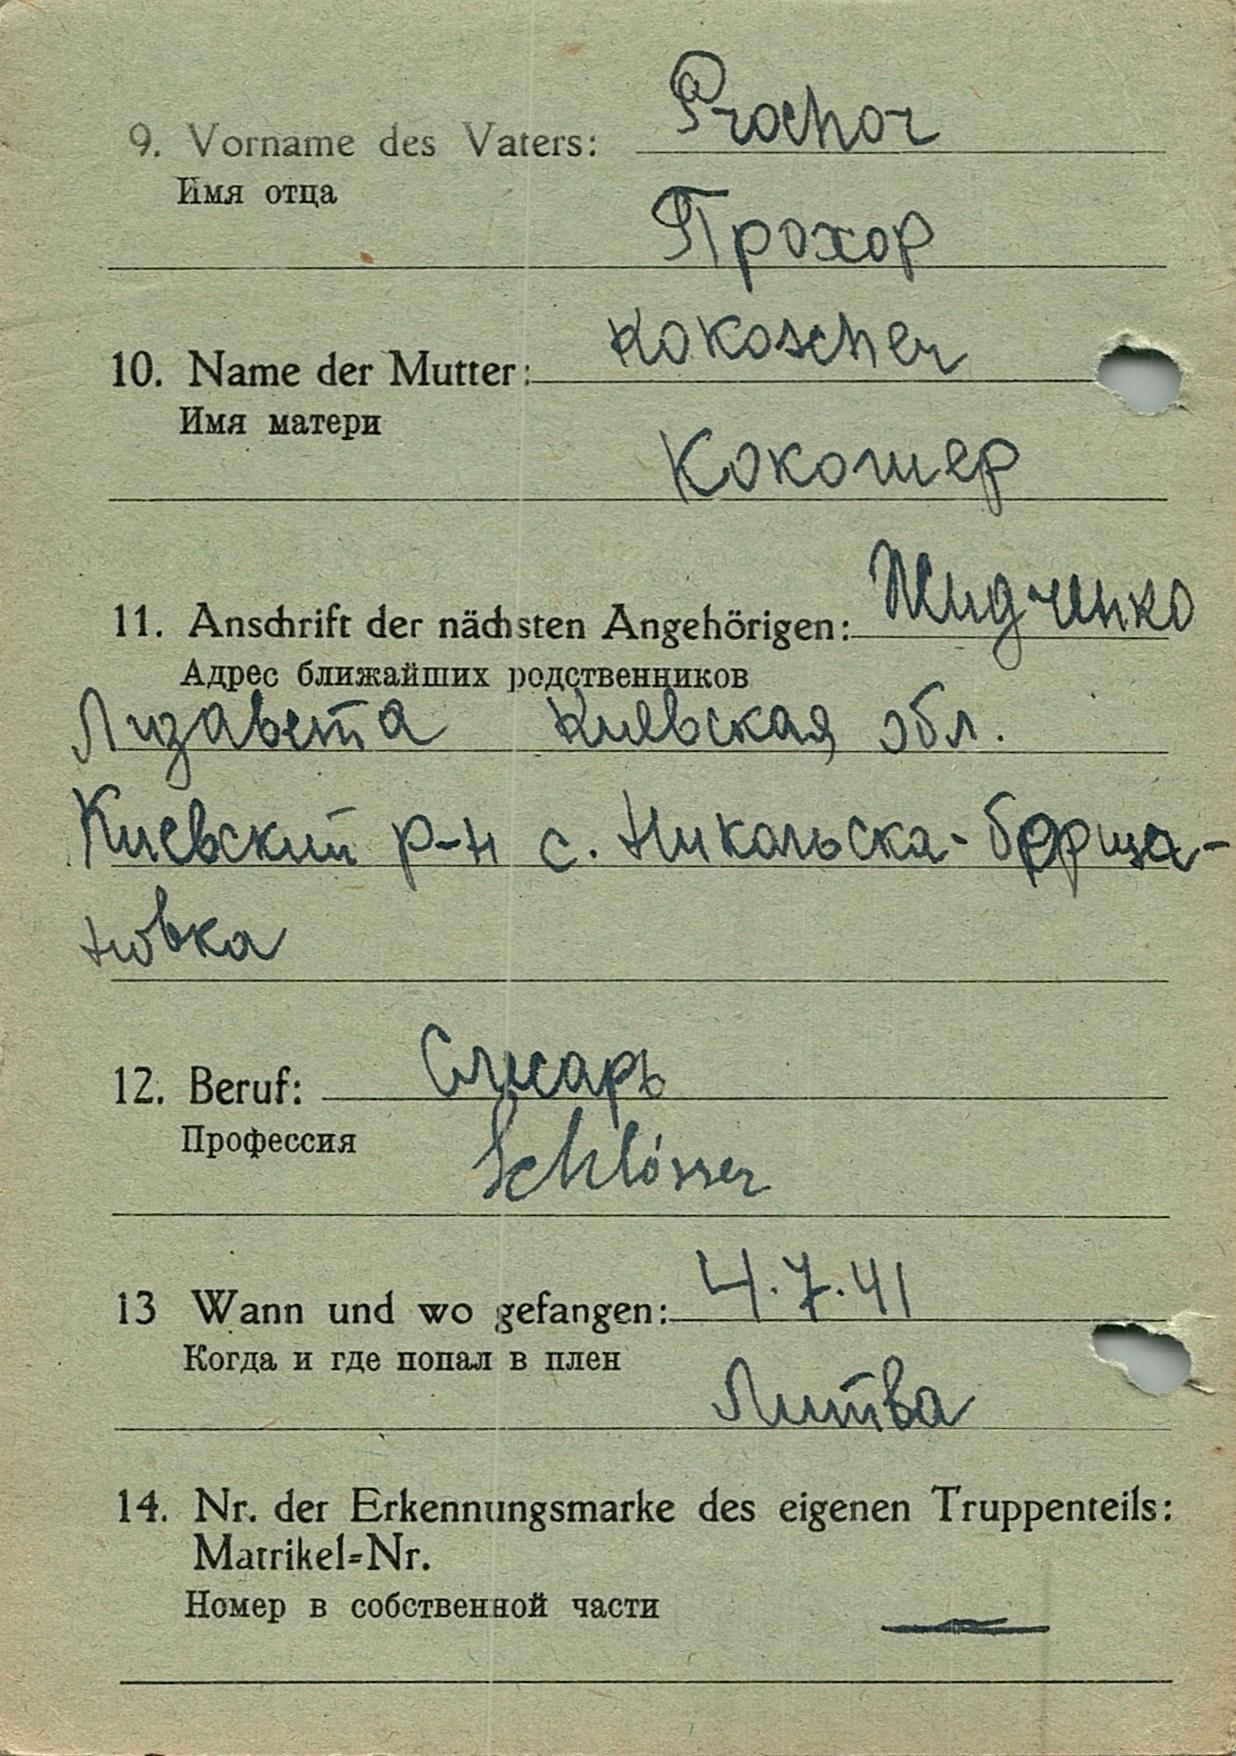 9. Vorname des Vaters: Prochor
Имя отца
Прохор
10. Name der Mutter: Kokoscher
Имя матери
Кокошер
11. Anschrift der nächsten Angehörigen: Жидченко
Адрес ближайших родственников
Лизавета Киевская обл.
Киевский р-н с. Никольска-борща-
новка
12. Beruf: Слисарь
Профессия
Schlósser
13 Wann und wo gefangen: 4.7.41
Когда и где попал в плен
Литва
14. Nr. der Erkennungsmarke des eigenen Truppenteils:
Matrikel=Nr.
Номер в собственной части
—